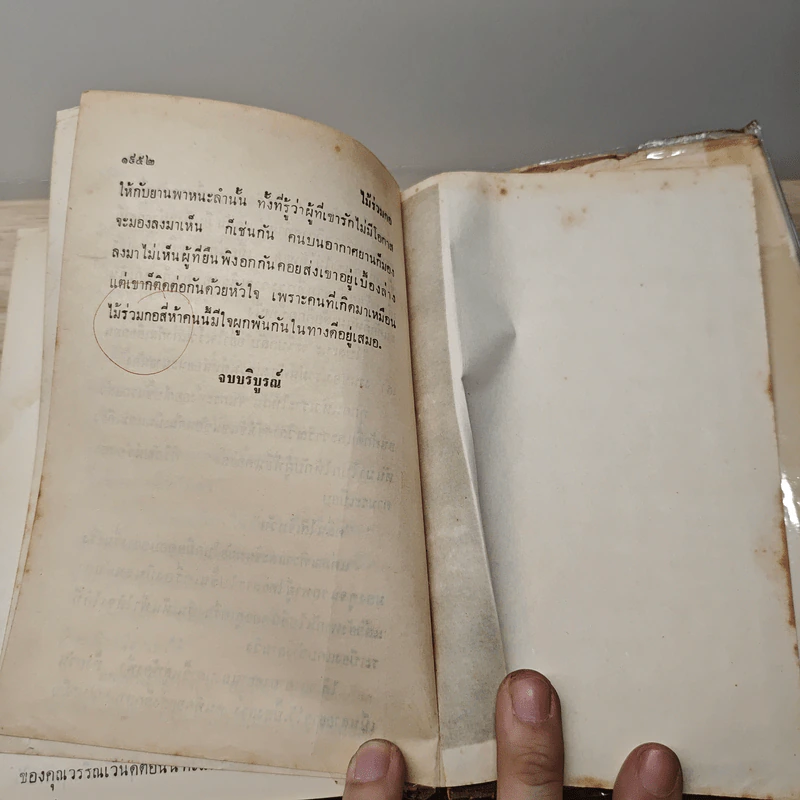 ๑๙๕๒
ไม้ร่วมกอ
ให้กับยานพาหนะลำนั้น ทั้งที่รู้ว่าผู้ที่เขารักไม่มีโอกาส
จะมองลงมาเห็น ก็เช่นกัน คนบนอากาศยานก็มอง
ลงมาไม่เห็นผู้ที่ยืนพิงอกกันคอยส่งเขาอยู่เบื้องล่าง
แต่เขาก็ติดต่อกันด้วยหัวใจ เพราะคนที่เกิดมาเหมือน
ไม้ร่วมกอสี่ห้าคนนี้มีใจผูกพันกันในทางดีอยู่เสมอ.
จบบริบูรณ์
ของคุณวรรณเวนิต